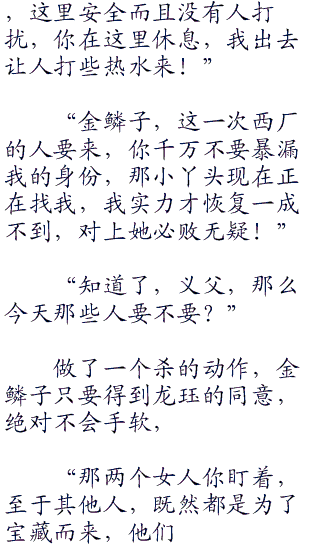 ，这里安全而且没有人打
扰，你在这里休息，我出去
让人打些热水来！”
“金鳞子，这一次西厂
的人要来，你千万不要暴漏
我的身份，那小丫头现在正
在找我，我实力才恢复一成
不到，对上她必败无疑！”
“知道了，义父，那么
今天那些人要不要？”
做了一个杀的动作，金
鳞子只要得到龙珏的同意，
绝对不会手软，
“那两个女人你盯着，
至于其他人，既然都是为了
宝藏而来，他们